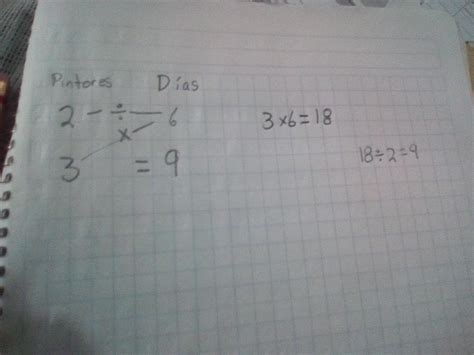 Pintores Días
2 — ÷ — 6
x
3 = 9
3 x 6 = 18
18 ÷ 2 = 9